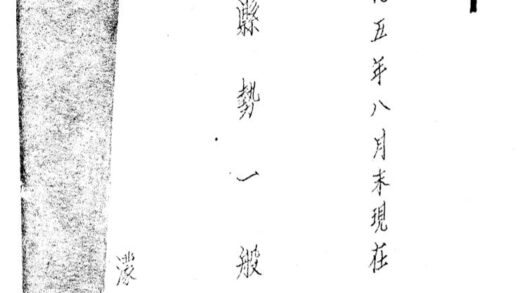 五年八月末現在
縣勢一般
濛